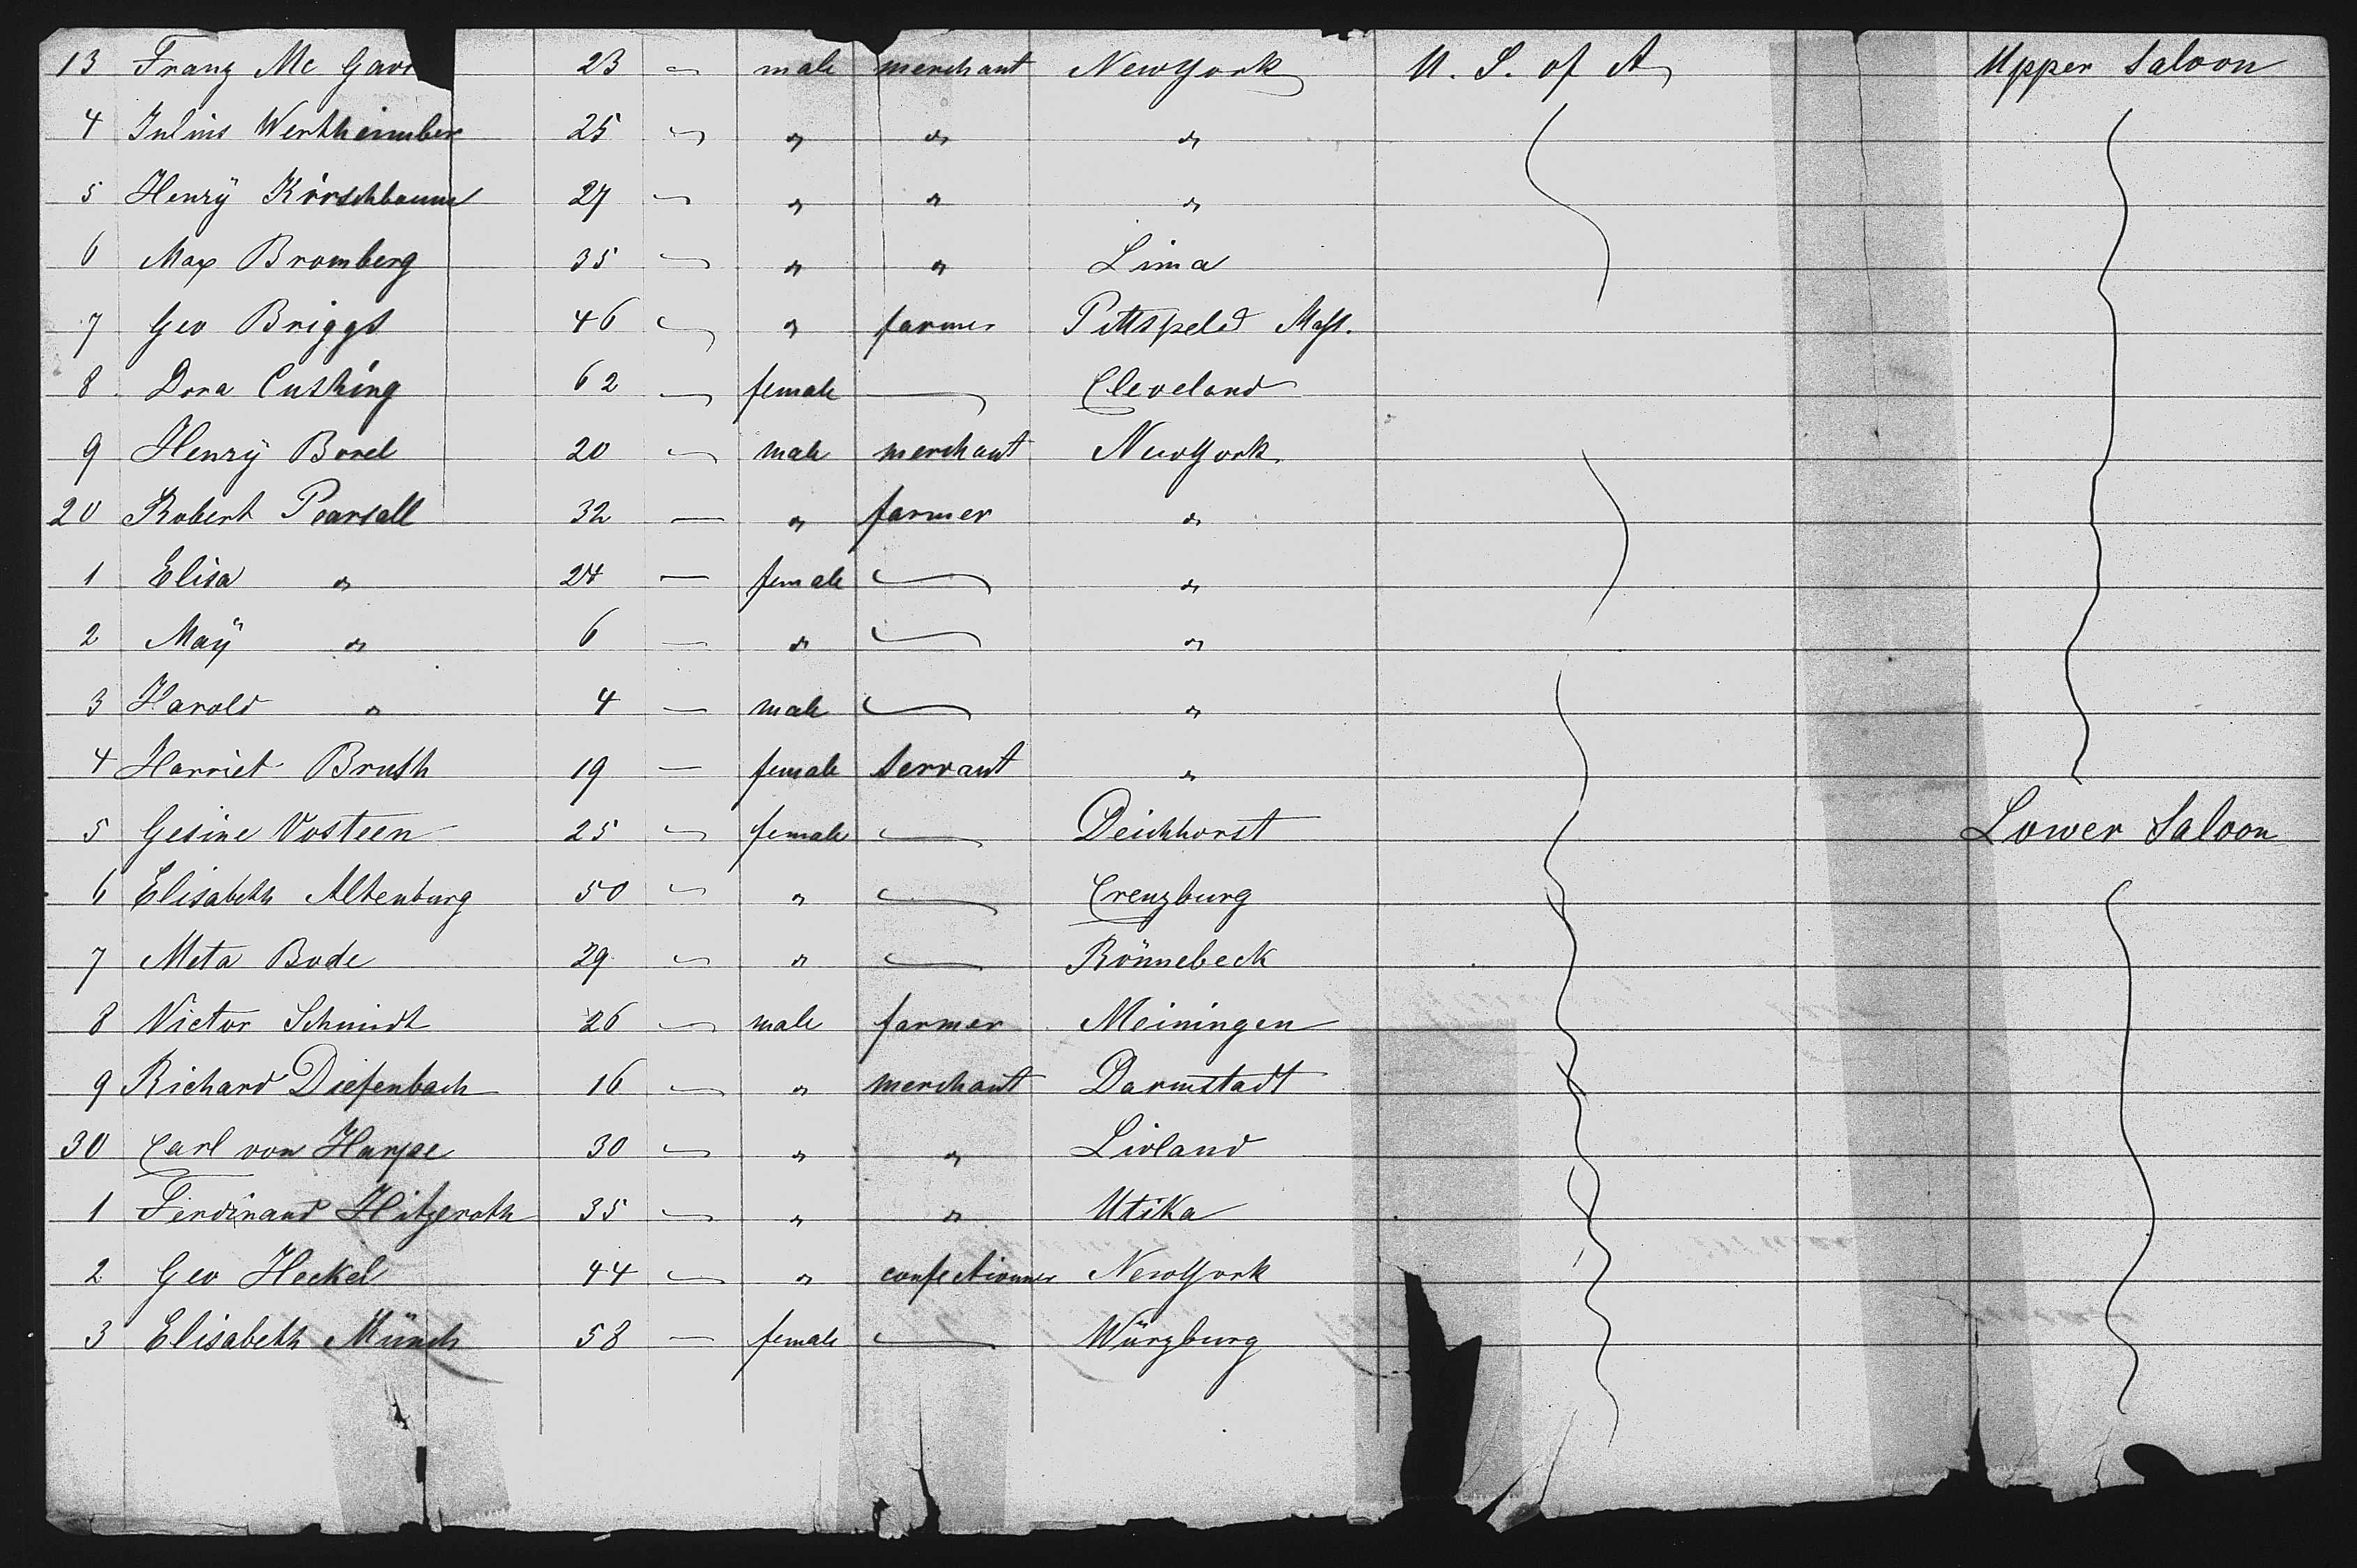 13 Franz Mc Gav 23 " male merchant NewYork U. S. of A Upper Saloon
4 Julius Wertheimber 25 " " " "
5 Henrÿ Kirschbaum 27 " " " "
6 Max Bromberg 35 " " " Lima
7 Geo Briggs 46 " " farmer Pittsfield Mass.
8 Dora Cushing 62 " female — Cleveland
9 Henrÿ Borel 20 " male merchant NewYork
20 Robert Pearsall 32 — " farmer "
1 Elisa " 24 — female — "
2 Maÿ " 6 — " — "
3 Harold " 4 — male — "
4 Harriet Brush 19 — female servant "
5 Gesine Vosteen 25 " female — Deichhorst Lower Saloon
6 Elisabeth Altenburg 50 " " — Creuzburg
7 Meta Bode 29 " " — Rönnebeck
8 Victor Schmidt 26 " male farmer Meiningen
9 Richard Diefenbach 16 " " merchant Darmstadt
30 Carl von Harpe 30 " " " Livland
1 Ferdinand Hitzeroth 35 " " " Utika
2 Geo Heckel 44 " " confectionner NewYork
3 Elisabeth Münch 58 — female — Würzburg